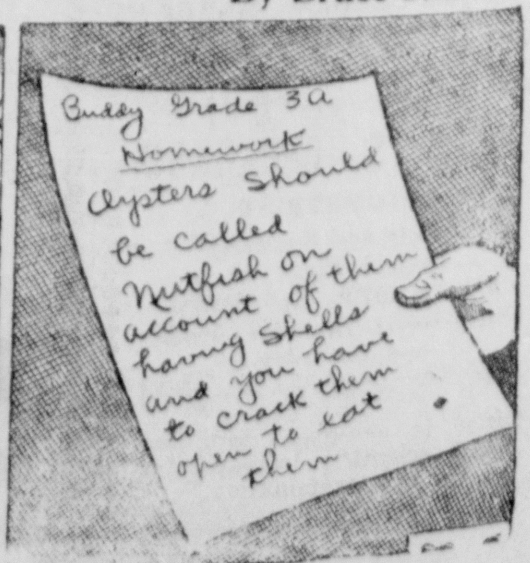 Buddy Grade 3a
Homework
Oysters Should
be called
Nutfish on
account of them
having Shells
and you have
to crack them
open to eat
them